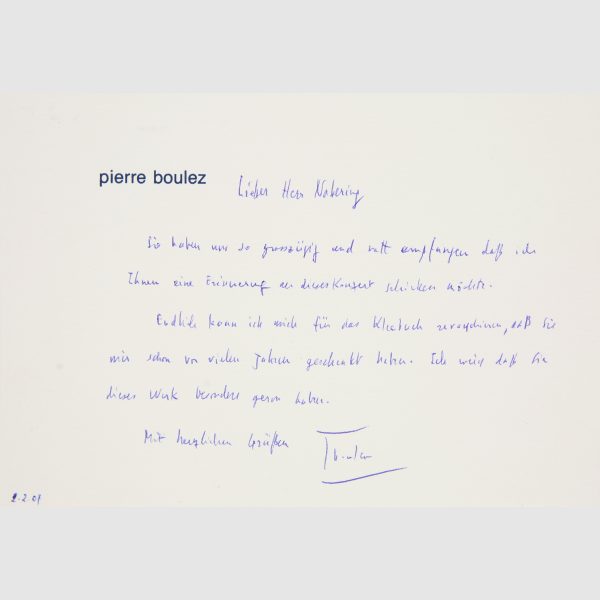 pierre boulez
Lieber Herr Nabering
Sie haben uns so grosszügig und nett empfangen daß ich
Ihnen eine Erinnerung an dieses Konzert schicken möchte.
Endlich kann ich mich für das Kleebuch revanchieren, daß Sie
mir schon vor vielen Jahren geschenkt haben. Ich weiß daß Sie
dieses Werk besonders gern haben.
Mit herzlichen Grüßen